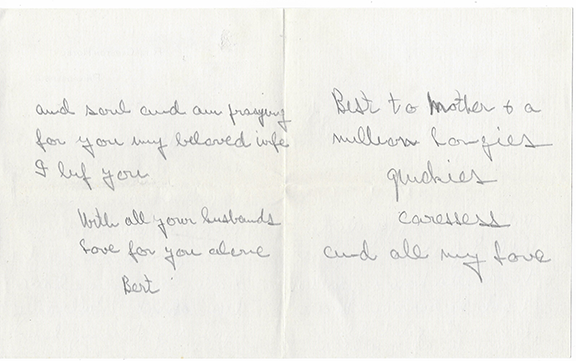 and soul and am praying
for you my beloved wife
I luf you
With all your husbands
Love for you alone
Bert
Best to Mother & a
million Longies
quickies
caressess
and all my Love